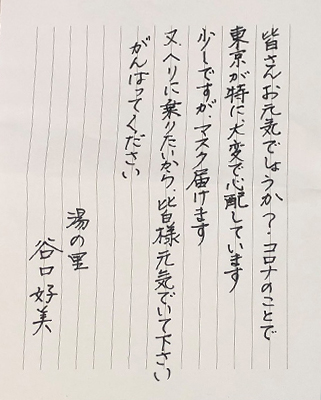 皆さんお元気でしょうか?.コロナのことで
東京が特に大変で心配しています
少しですが、マスク届けます
又、ヘリに乗りたいから、皆様元気でいて下さい
がんばってください
湯の里
谷口好美